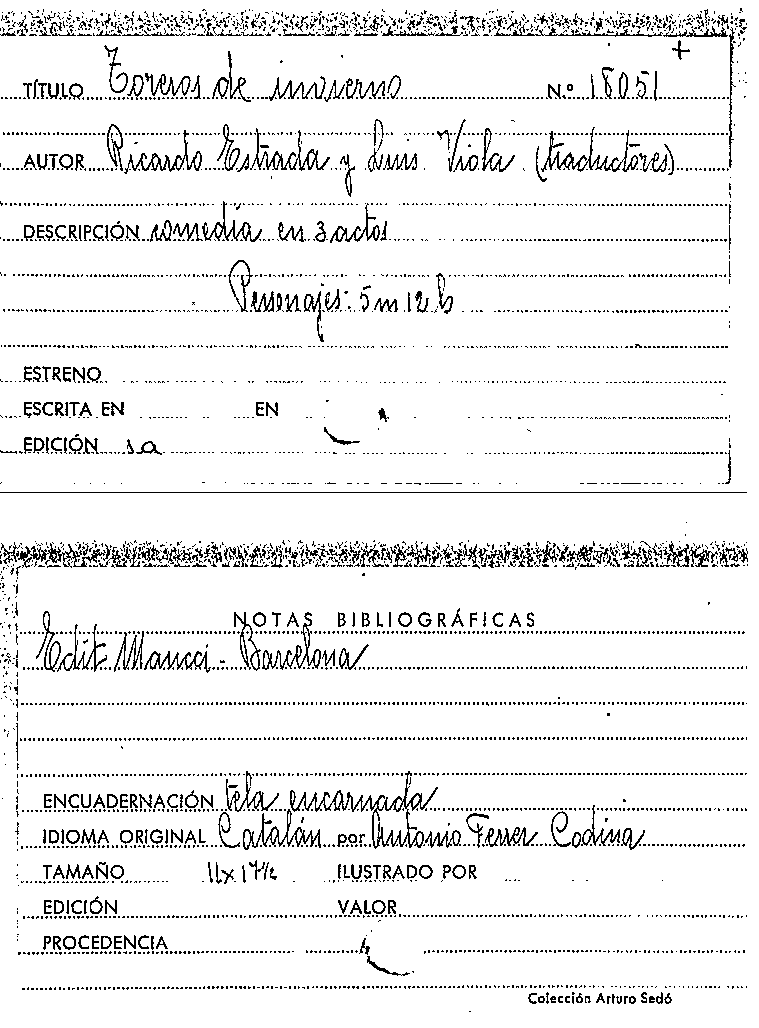 +
TÍTULO Toreros de invierno N.º 18051
AUTOR Ricardo Estrada y Luis Viola (traductores)
DESCRIPCIÓN comedia en 3 actos
Personajes: 5 m 12 h
ESTRENO
ESCRITA EN EN
EDICIÓN 1a
NOTAS BIBLIOGRÁFICAS
Edit Maucci - Barcelona
ENCUADERNACIÓN tela encarnada
IDIOMA ORIGINAL Catalán por Antonio Ferrer Codina
TAMAÑO 11x17½ ILUSTRADO POR
EDICIÓN VALOR
PROCEDENCIA
Colección Arturo Sedó